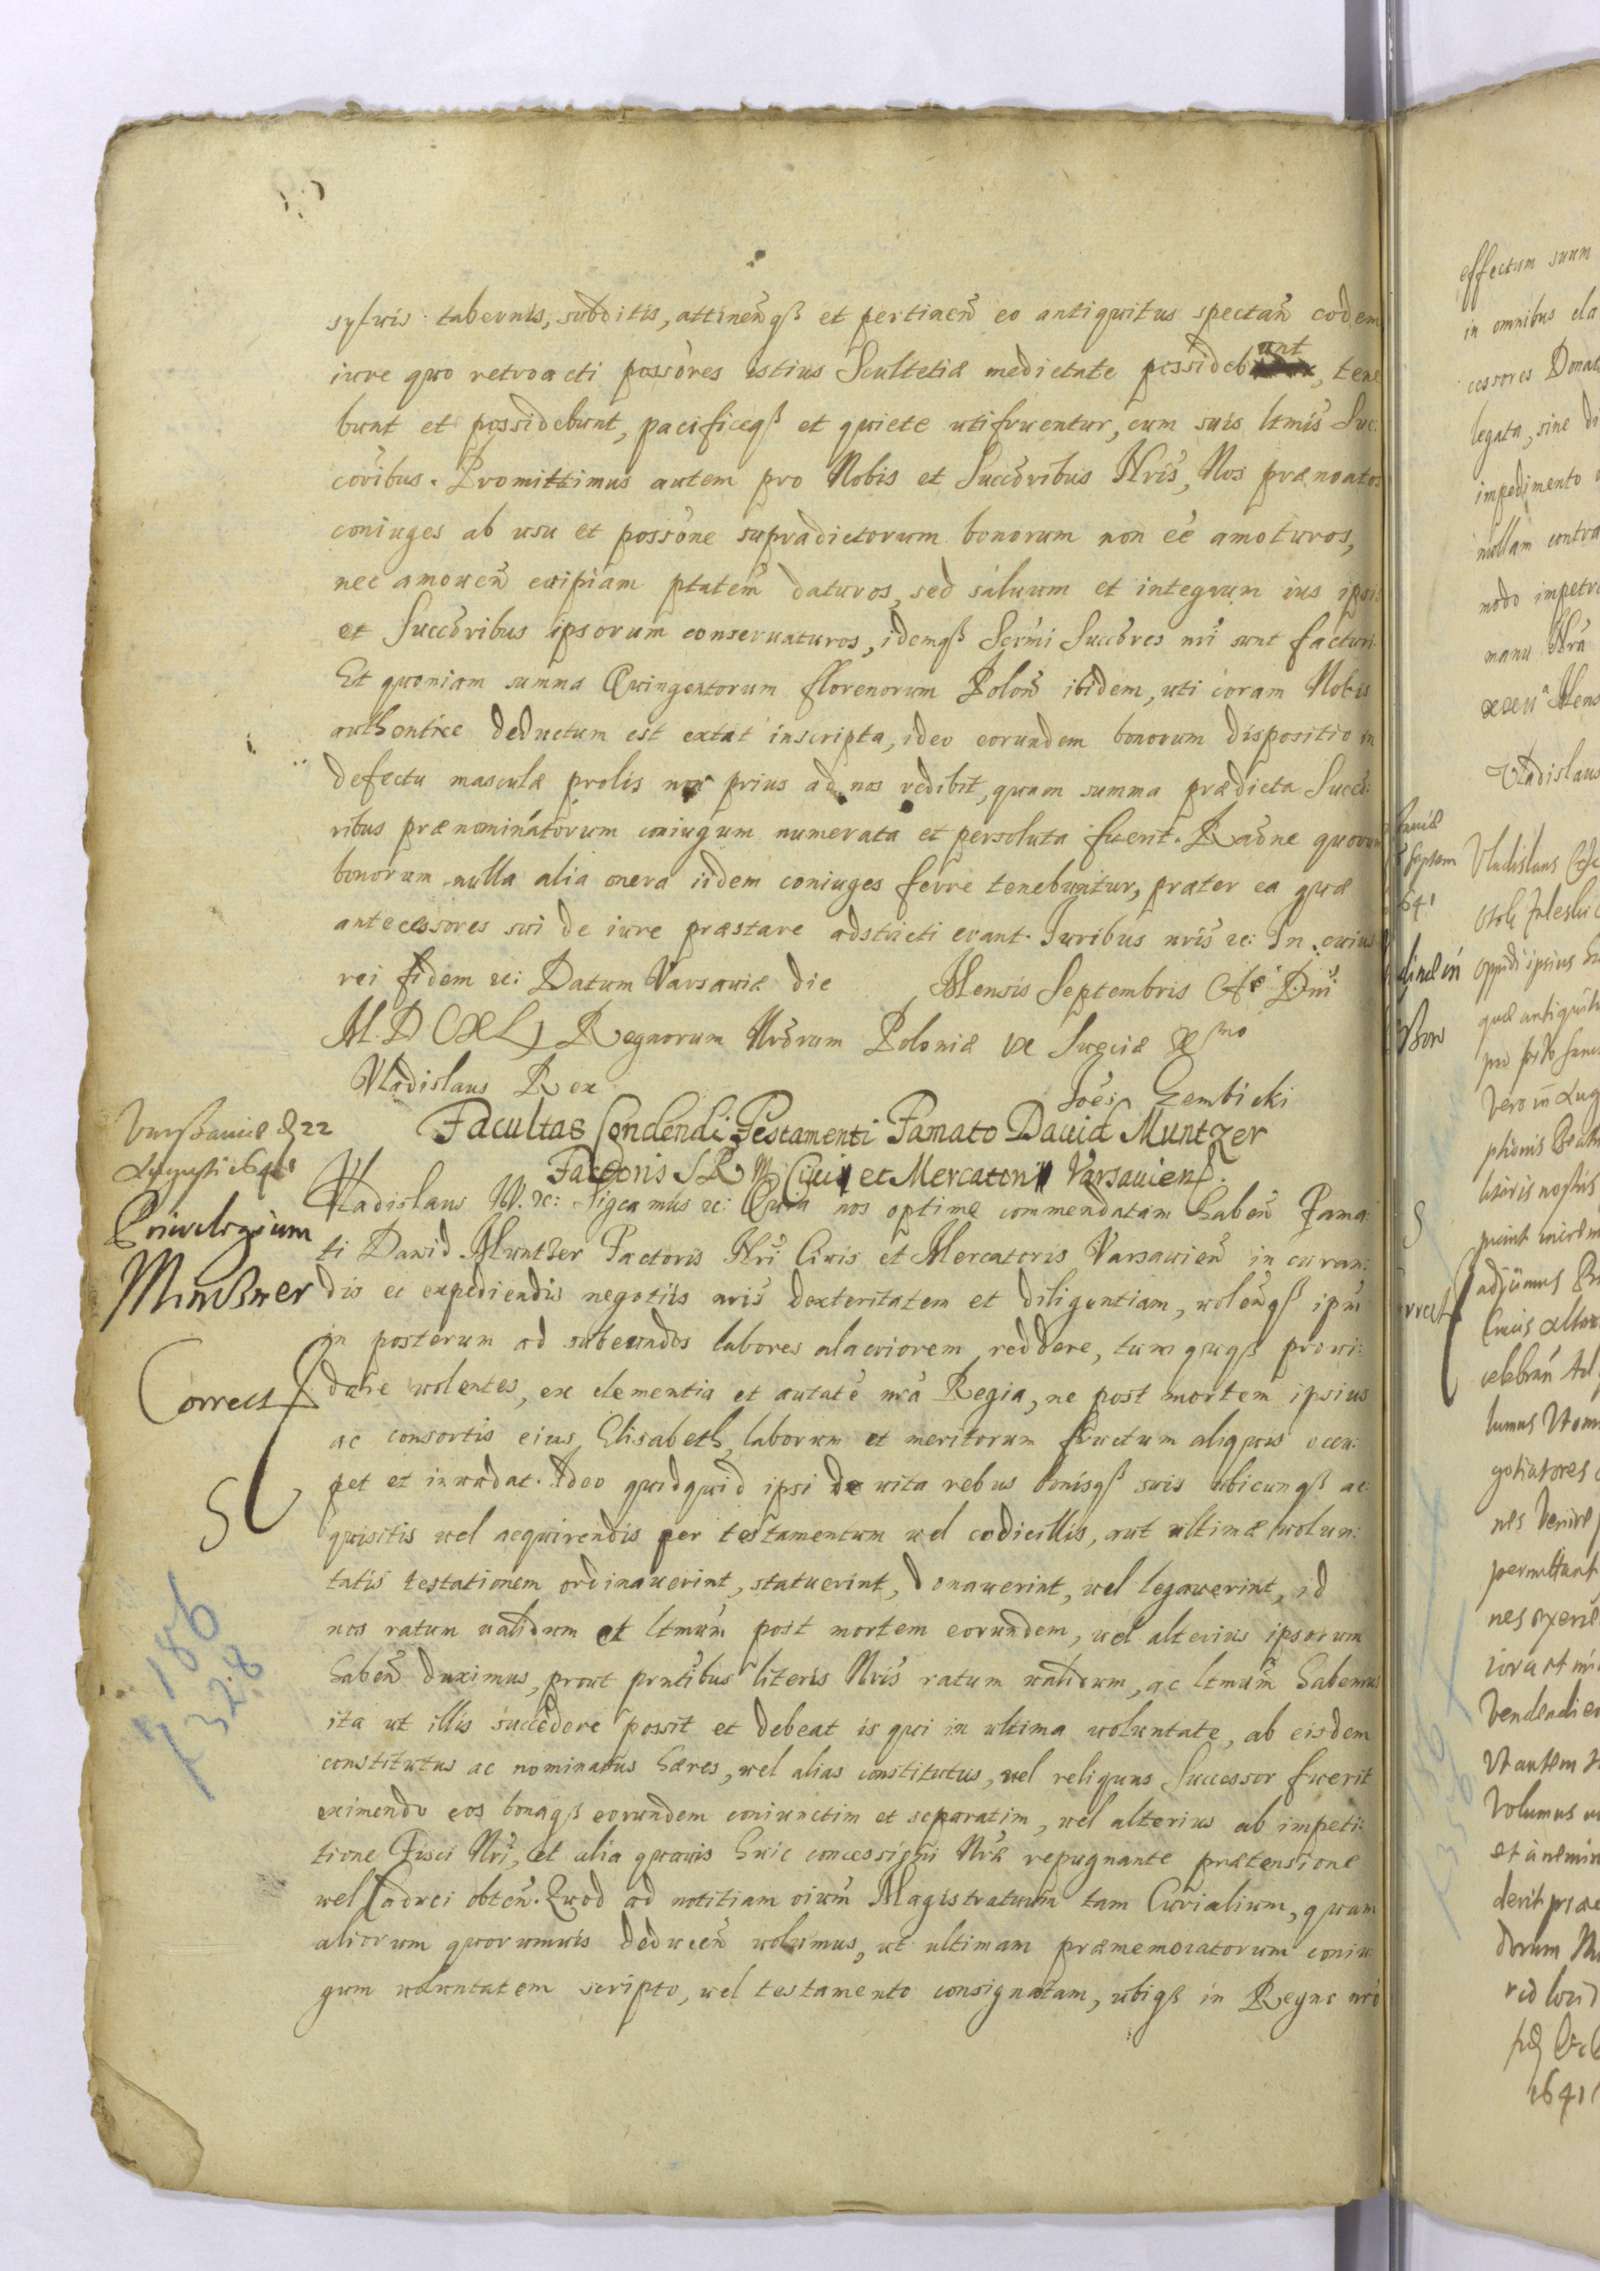 syluis tabernis, subditis, attinen̄qꝫ et pertinen̄ eo antiquitus spectan̄ eodem
iure quo retroacti possōres istius Scultetiæ medietate possidebunt, tene
bunt et possidebunt, pacificeqꝫ et quiete utifruentur, cum suis ltmis Suc:
cōribus. Promittimus autem pro Nobis et Succōribus Nris, Nos prænoatos
coniuges ab usu et possōne supradictorum bonorum non eē amoturos,
nec amouen̄ cuipiam ptatem daturos, sed saluum et integrum ius ipsis
et Succōribus ipsorum conseruaturos, idemqꝫ Sermi Succōres nri sunt facturi.
Et quoniam summa Quingentorum florenorum Polon̄ ibidem, uti coram Nobis
authentice deductum est extat inscripta, ideo eorundem bonorum dispositio in
defectu masculæ prolis non prius ad nos redibit, quam summa prædicta Succō:
ribus prænominatorum coniugum numerata et persoluta fuerit. Raōne quorum
bonorum nulla alia onera iidem coniuges ferre tenebuntur, præter ea quæ
antecessores sui de iure præstare adstricti erant. Iuribus nris ꝛc: In cuius
rei fidem ꝛc: Datum Varsauiæ die Mensis Septembris Dni
M.D.CXLI Regnorum Nrōrum Poloniæ IX Sueciæ Xmo
Vladislaus Rex
Joēs Gembicki
Facultas Condendi Testamenti Famato Dauid Muntzer
Factoris S R M Ciui et Mercatori Varsauien.
Varsauiæ d 22
Augusti 1641
Priuilegium
Correct
S
Vladislaus IV. ꝛc: Sigcamus ꝛc: Quia nos optime commendatam haben̄ Fama:
ti Dauid Muntzer Factoris Nri Ciuis et Mercatoris Varsauien̄ in curan:
dis et expediendis negotiis nris dexteritatem et diligentiam, uolen̄qꝫ ipm
in posterum ad subeundos labores alacriorem reddere, tum quoqꝫ proui:
dere uolentes, ex clementia et autate nra Regia, ne post mortem ipsius
ac consortis eius Elisabeth, laborum et meritorum fructum aliquis occu:
pet et inuadat. Ideo quidquid ipsi de uita rebus bonisqꝫ suis ubicunqꝫ ac:
quisitis uel acquirendis per testamentum uel codicillis, aut ultimæ uolun:
tatis testationem ordinauerint, statuerint, donauerint, uel legauerint, id
nos ratum ualidum et ltmum post mortem eorundem, uel alterius ipsorum
haben̄ duximus, prout pntibus literis Nris ratum ualidum, ac ltmum habemus
ita ut illis succedere possit et debeat is qui in ultima uoluntate, ab eisdem
constitutus ac nominatus hæres, uel alias constitutus, uel reliquus Successor fuerit
eximendo eos bonaqꝫ eorundem coniunctim et separatim, uel alterius ab impeti:
tione Fisci Nri, et alia quauis huic concessioni Nræ repugnante prætensione
uel caduci obten̄. Quod ad notitiam oium Magistratuum tam Curialium, quam
aliorum quorumuis deducen̄ uolumus, ut ultimam præmemoratorum coniu
gum uoluntatem scripto, uel testamento consignatam, ubiqꝫ in Regno nro
186
328
effectum suum
in omnibus
cessores Donat
legata, sine di
impedimento
nullam contra
modo impetra
manu Nra
Mens
Vladislaus
Septem
641
Vladislaus
oppidi ipsius
quæ antiquitu
adjiimus
celebran̄
nes
permittant
Vendendi
Vt autem
Volumus
et a nemin
derit
1641